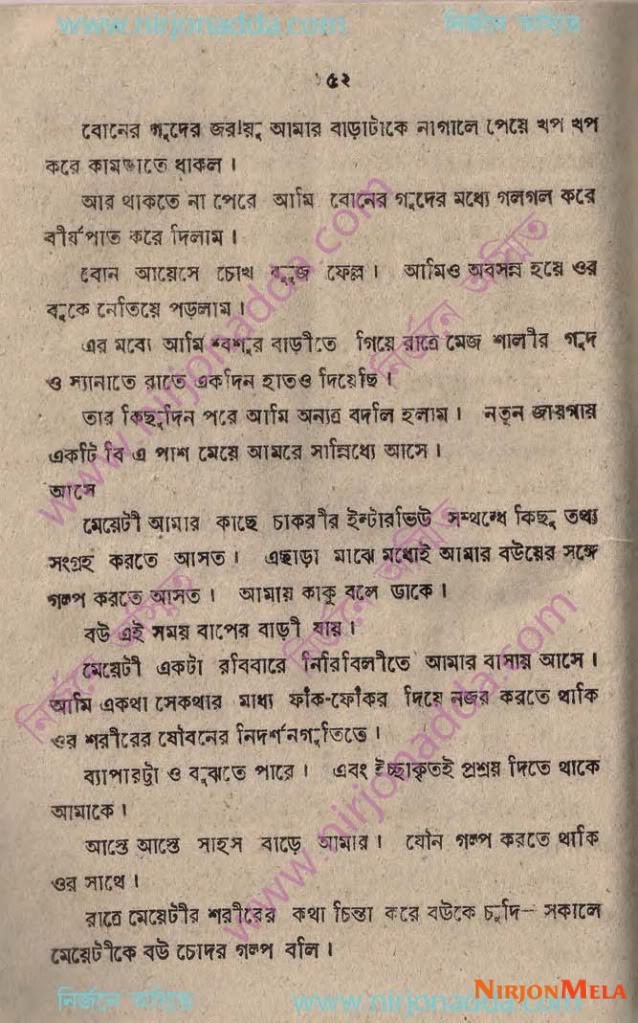 www.nirjonadda.com নির্জনে অস্মিত
৫২
বোনের গুদের জরায়ু আমার বাড়াটাকে নাগালে পেয়ে খপ খপ
করে কামড়াতে থাকল।
আর থাকতে না পেরে আমি বোনের গুদের মধ্যে গলগল করে
বীর্যপাত করে দিলাম।
বোন আয়েসে চোখ বুজে ফেল্ল। আমিও অবসন্ন হয়ে ওর
বুকে নেতিয়ে পড়লাম।
এর মধ্যে আমি শ্বশুর বাড়ীতে গিয়ে রাত্রে মেজ শালীর গুদ
ও ম্যানাতে রাতে একদিন হাতও দিয়েছি।
তার কিছুদিন পরে আমি অন্যত্র বদলি হলাম। নতুন জায়গায়
একটি বি এ পাশ মেয়ে আমরে সান্নিধ্যে আসে।
আসে
মেয়েটী আমার কাছে চাকরীর ইন্টারভিউ সম্বন্ধে কিছু তথ্য
সংগ্রহ করতে আসত। এছাড়া মাঝে মধ্যেই আমার বউয়ের সঙ্গে
গল্প করতে আসত। আমায় কাকু বলে ডাকে।
বউ এই সময় বাপের বাড়ী যায়।
মেয়েটী একটা রবিবারে নিরিবিলীতে আমার বাসায় আসে।
আমি একথা সেকথার মাধ্য ফাঁক-ফোঁকর দিয়ে নজর করতে থাকি
ওর শরীরের যৌবনের নিদর্শনগুলিতে।
ব্যাপারট্টা ও বুঝতে পারে। এবং ইচ্ছাকৃতই প্রশ্রয় দিতে থাকে
আমাকে।
আস্তে আস্তে সাহস বাড়ে আমার। যৌন গল্প করতে থাকি
ওর সাথে।
রাত্রে মেয়েটীর শরীরের কথা চিন্তা করে বউকে চুদি— সকালে
মেয়েটীকে বউ চোদর গল্প বলি।
NIRJONMELA
নির্জনে অস্মিত www.nirjonadda.com